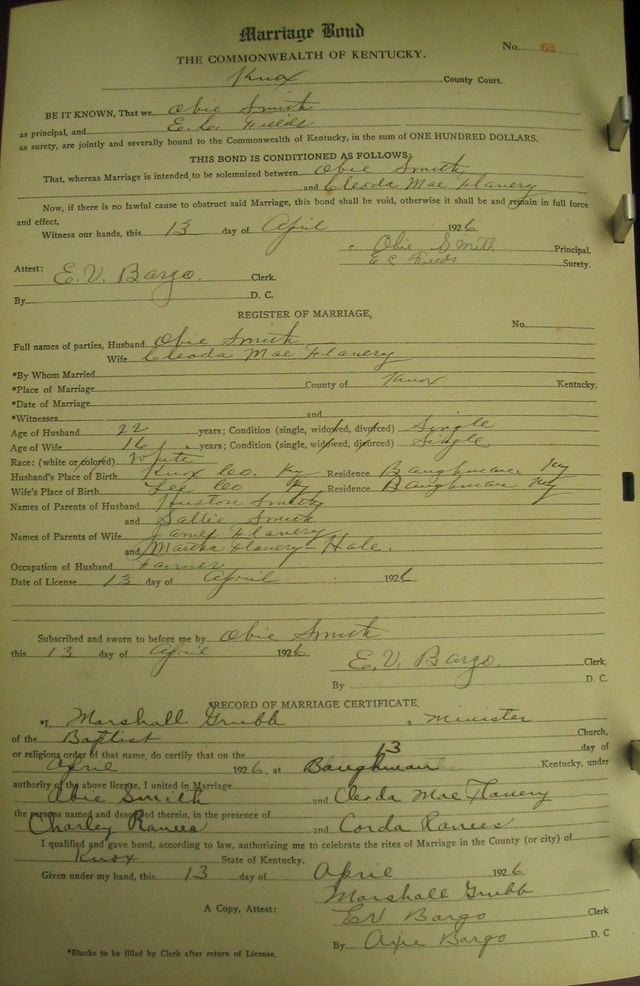 Marriage Bond
No. 63
THE COMMONWEALTH OF KENTUCKY.
Knox County Court.
BE IT KNOWN, That we Obie Smith
as principal, and E. C. Fields
as surety, are jointly and severally bound to the Commonwealth of Kentucky, in the sum of ONE HUNDRED DOLLARS.
THIS BOND IS CONDITIONED AS FOLLOWS:
That, whereas Marriage is intended to be solemnized between Obie Smith
and Cleoda Mae Flanery
Now, if there is no lawful cause to obstruct said Marriage, this bond shall be void, otherwise it shall be and remain in full force
and effect,
Witness our hands, this 13 day of April 1926
Obie Smith Principal.
E C Fields Surety.
Attest: E. V. Bargo. Clerk.
By D. C.
REGISTER OF MARRIAGE,
No.
Full names of parties, Husband Obie Smith
Wife Cleoda Mae Flanery
*By Whom Married
*Place of Marriage County of Knox Kentucky.
*Date of Marriage
*Witnesses and
Age of Husband 22 years; Condition (single, widowed, divorced) Single
Age of Wife 16 years; Condition (single, widowed, divorced) Single
Race: (white or colored) White
Husband's Place of Birth Knox Co. Ky Residence Baughman Ky
Wife's Place of Birth Lee Co Ky Residence Baughman Ky
Names of Parents of Husband Huston Smith
and Sallie Smith
Names of Parents of Wife James Flanery
and Martha Flanery-Hale.
Occupation of Husband Farmer
Date of License 13 day of April 1926
Subscribed and sworn to before me by Obie Smith
this 13 day of April 1926
E. V. Bargo. Clerk.
By D. C.
RECORD OF MARRIAGE CERTIFICATE,
*I, Marshall Grubb a Minister
of the Baptist Church,
or religious order of that name, do certify that on the 13 day of
April 1926, at Baughman Kentucky, under
authority of the above license, I united in Marriage
Obie Smith and Cleoda Mae Flanery
the persons named and described therein, in the presence of
Charley and Corda
I qualified and gave bond, according to law, authorizing me to celebrate the rites of Marriage in the County (or city) of
Knox State of Kentucky.
Given under my hand, this 13 day of April 1926
Marshall Grubb
A Copy, Attest: EV Bargo Clerk
By Bargo D. C
*Blanks to be filled by Clerk after return of License.